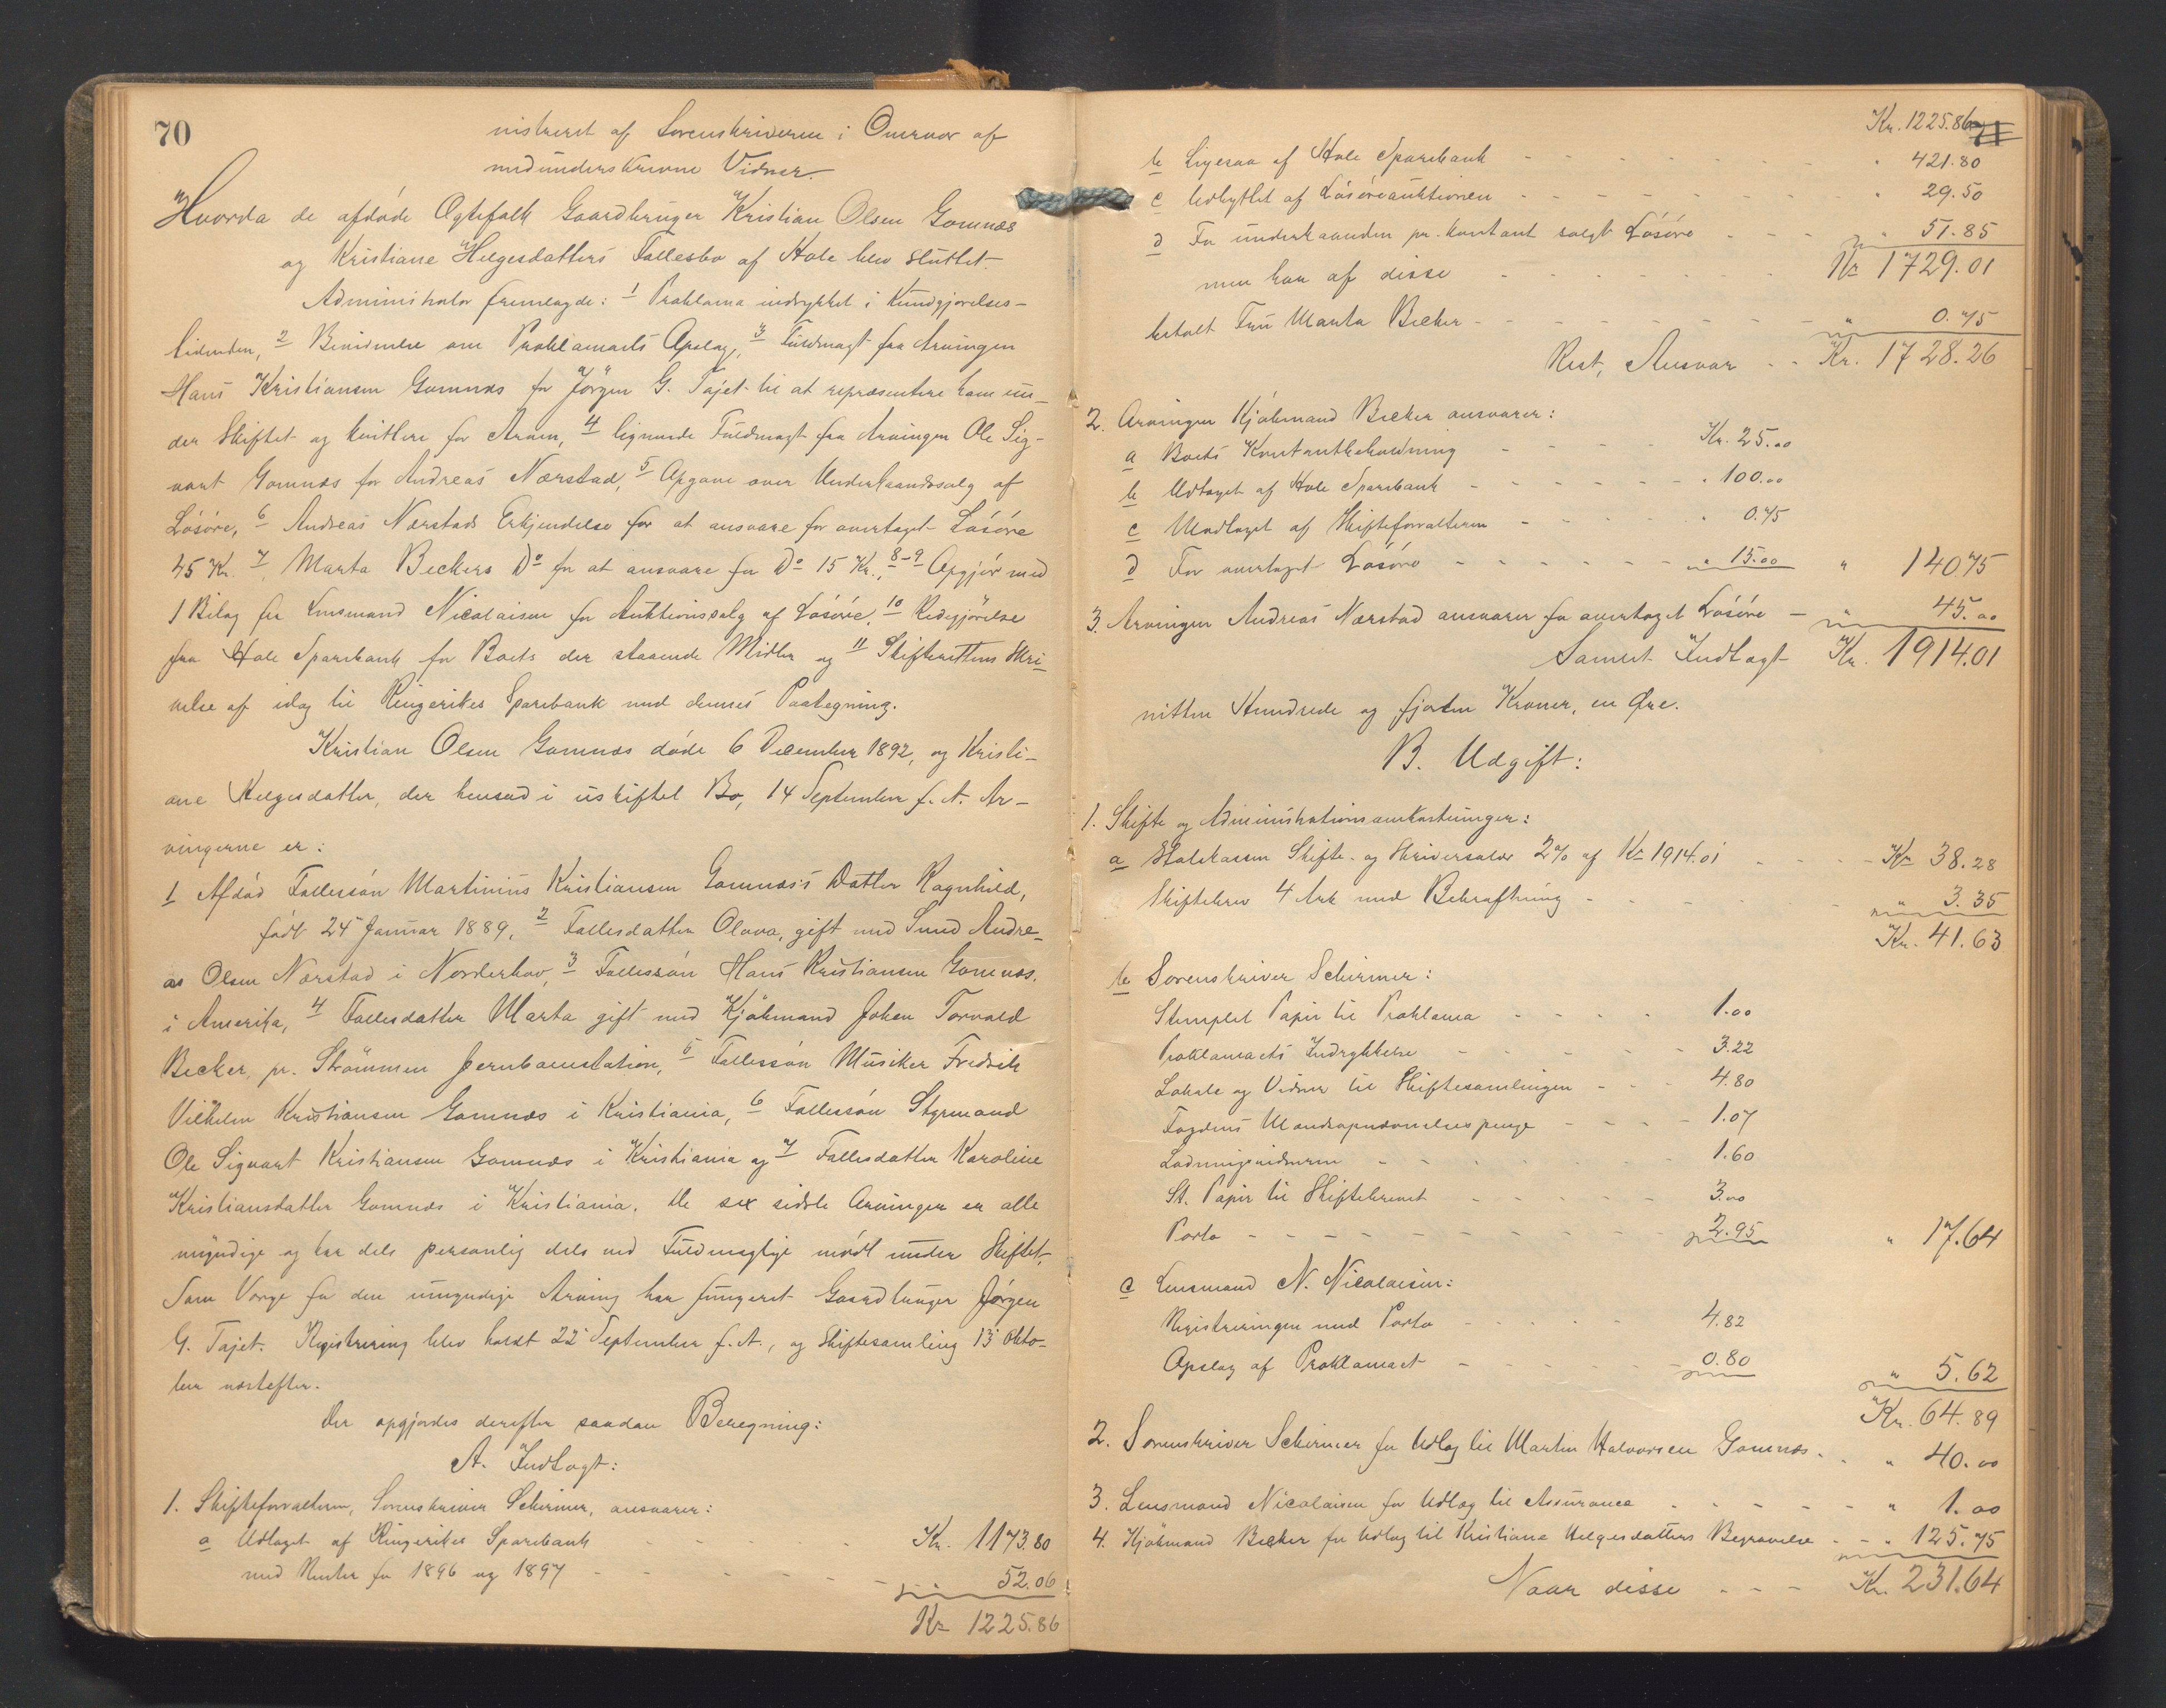 70
nistreret af Sorenskriveren i Overvær af
medunderskrevne Vidner.
Hvorda de afdøde Ægtefolk Gaardbruger Kristian Olsen Gomnæs
og Kristiane Helgesdatters Fællesbo af Hole blev sluttet.
Administrator fremlagde: 1 Proklama indrykket i Kundgjørelses-
tidenden, 2 Bevidnelse om Proklamaets Opslag, 3 Fuldmagt fra Arvingen
Hans Kristiansen Gomnæs for Jørgen G. Fajet til at repræsentere ham un-
der Skiftet og kvittere for Arven, 4 lignende Fuldmagt fra Arvingen Ole Sig-
vart Gomnæs for Andreas Nærstad, 5 Opgave over Underhaandssalg af
Løsøre, 6 Andreas Nærstads Erkjendelse for at ansvare for overtaget Løsøre
45 Kr. 7, Marta Beckers Do for at ansvare for Do 15 Kr., 8-9 Opgjør med
1 Bilag fra Lensmand Nicolaisen for Auktionssalg af Løsøre, 10 Redegjørelse
fra Hole Sparebank for Boets der staaende Midler og 11 Skifterettens Skri-
velse af idag til Ringerikes Sparebank med dennes Paategning.
Kristian Olsen Gomnæs døde 6 December 1892, og Kristi-
ane Helgesdatter, der hensad i uskiftet Bo, 14 September f. A. Ar-
vingerne er:
1 Afdød Fællessøn Martinius Kristiansen Gomnæs's Datter Ragnhild,
født 24 Januar 1889, 2 Fællesdatter Olava, gift med Smed Andre-
as Olsen Nærstad i Norderhov, 3 Fællessøn Hans Kristiansen Gomnæs.
i Amerika, 4 Fællesdatter Marta gift med Kjøbmand Johan Torvald
Becker, pr. Strømmen Jernbanestation, 5 Fællessøn Musiker Fredrik
Vilhelm Kristiansen Gomnæs i Kristiania, 6 Fællessøn Styrmand
Ole Sigvart Kristiansen Gomnæs i Kristiania og 7 Fællesdatter Karoline
Kristiansdatter Gomnæs i Kristiania. De sex sidste Arvinger er alle
myndige og har dels personlig dels ved Fuldmægtige mødt under Skiftet.
Som Værge for den umyndige Arving har fungeret Gaardbruger Jørgen
G. Fajet. Registrering blev holdt 22 September f. A., og Skiftesamling 13 Okto-
ber næstefter.
Der opgjordes derefter saadan Beregning:
A. Indtægt:
1. Skifteforvalteren, Sorenskriver Schirmer, ansvarer:
a Udtaget af Ringerikes Sparebank - - - Kr. 1173.80
med Renter for 1896 og 1897 - - - " 52.06
Kr 1225.86
71
Kr. 1225.86
b Ligesaa af Hole Sparebank - - - " 421.80
c Udbyttet af Løsøreauktionen - - - " 29.50
d For underhaanden pr. kontant solgt Løsøre - - - " 51.85
Kr 1729.01
men han af disse - - -
betalt Fru Marta Becker - - - " 0.75
Rest, Ansvar - - Kr. 1728.26
2. Arvingen Kjøbmand Becker ansvarer:
a Boets Kontantbeholdning - - - Kr. 25.00
b Udtaget af Hole Sparebank - - - " 100.00
c Modtaget af Skifteforvalteren - - - " 0.75
d For overtaget Løsøre - - - " 15.00 " 140.75
3. Arvingen Andreas Nærstad ansvarer for overtaget Løsøre - " 45.00
Samlet Indtægt Kr. 1914.01
nitten Hundrede og fjorten Kroner, en Øre.
B. Udgift:
1. Skifte og Administrationsomkostninger:
a Statskassen Skifte- og Skriversalær 2% af Kr 1914.01 - - - Kr 38.28
Skiftebrev 4 Ark med Bekræftning - - - " 3.35
Kr. 41.63
b Sorenskriver Schirmer:
Stemplet Papir til Proklama - - - 1.00
Proklamaets Indrykkelse - - - 3.22
Lokale og Vidner til Skiftesamlingen - - - 4.80
Fogdens Mandtapnævnelsespenge - - - 1.07
Ladningsvidnerne - - - 1.60
St. Papir til Skiftebrevet - - - 3.00
Porto - - - 2.95 " 17.64
c Lensmand N. Nicolaisen:
Registreringen med Porto - - - 4.82
Opslag af Proklamaet - - - 0.80 " 5.62
Kr. 64.89
2. Sorenskriver Schirmer for Udlæg til Martin Halvorsen Gomnæs - . " 40.00
3. Lensmand Nicolaisen for Udlæg til Assurance - - - " 1.00
4. Kjøbmand Becker for Udlæg til Kristiane Helgesdatters Begravelse - - " 125.75
Naar disse - - - Kr. 231.64